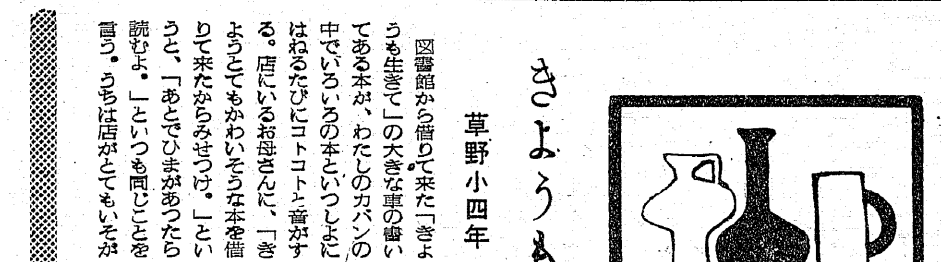 きようも
草野小四年
図書館から借りて来た「きよ
うも生きて」の大きな車の書い
てある本が、わたしのカバンの
中でいろいろの本といつしよに
はねるたびにコトコトと音がす
る。店にいるお母さんに、「き
ようとてもかわいそうな本を借
りて来たからみせつけ。」とい
うと、「あとでひまがあつたら
読むよ。」といつも同じことを
言う。うちは店がとてもいそが